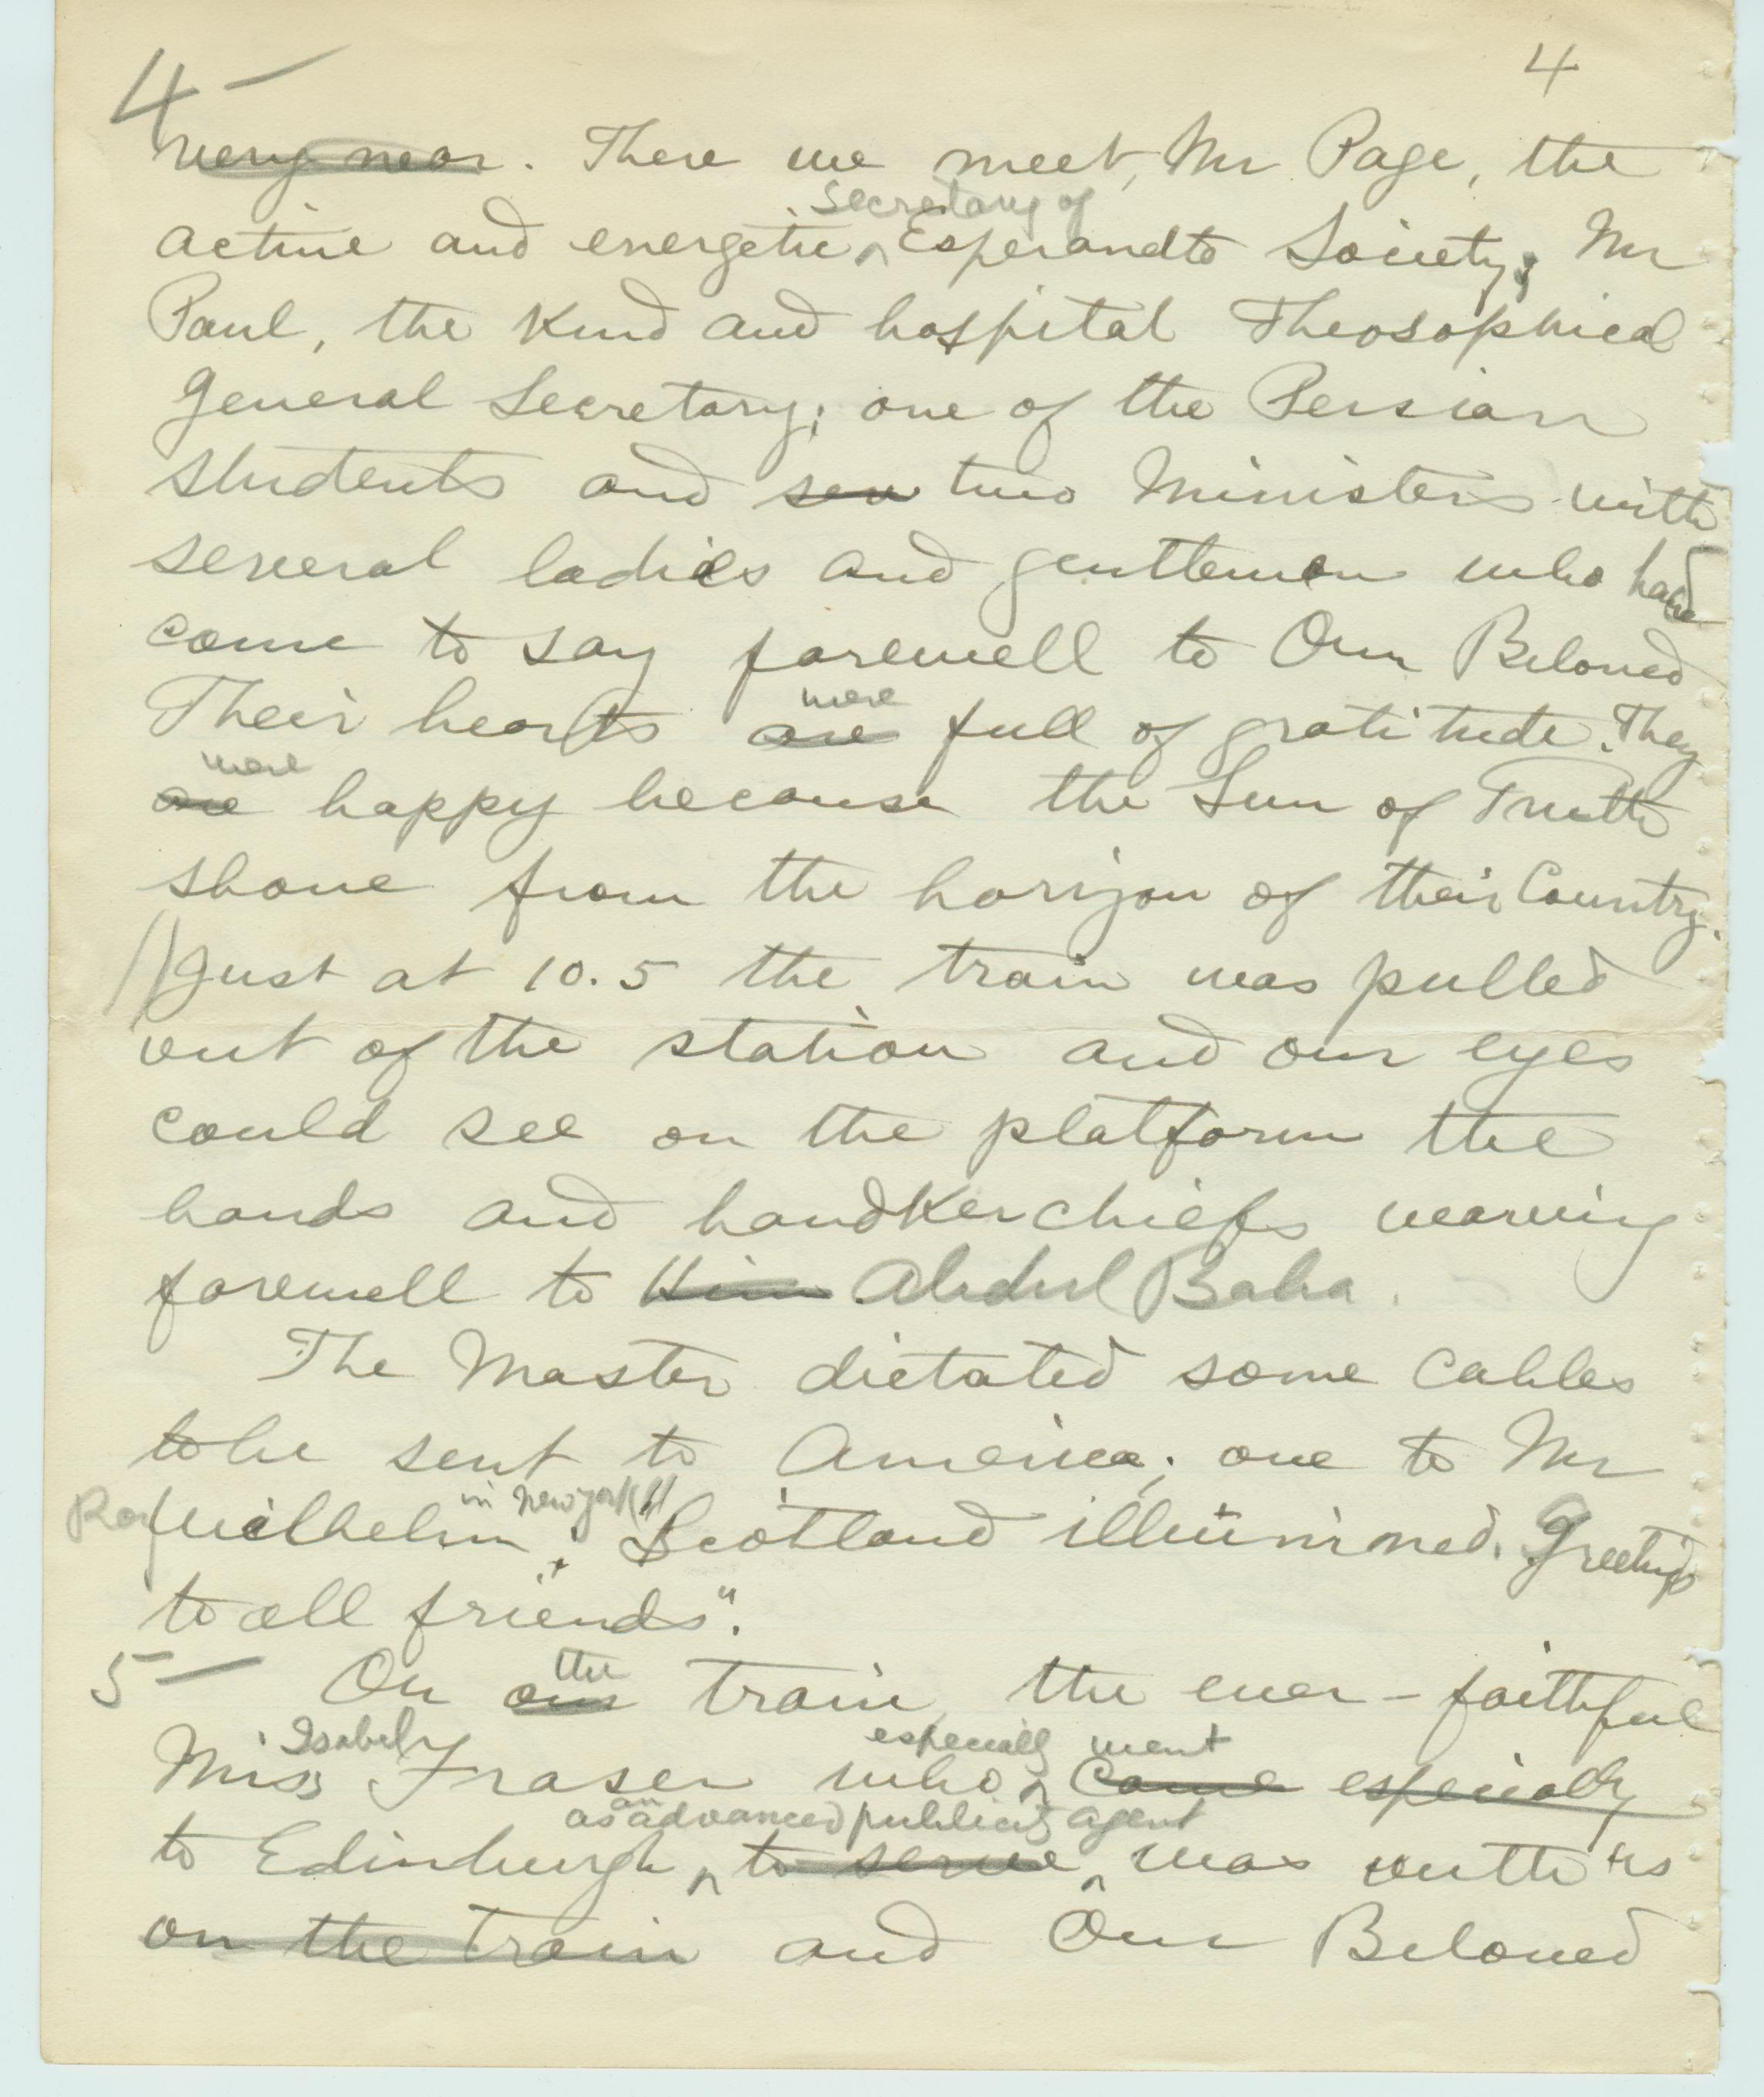 4 — 4
very near. There we meet, Mr Page, the
secretary of
active and energetic Esperandto Society; Mr
Paul, the Kind and hospital Theosophical
General Secretary; one of the Persian
students and sev two Ministers with
several ladies and gentlemen who had
come to say farewell to Our Beloved
were
Their hearts are full of gratitude. They
were
are happy because the Sun of Truth
shone from the horizon of their Country.
Just at 10.5 the train was pulled
out of the station and our eyes
could see on the platform the
hands and handkerchiefs wearing
farewell to Him Abdul Baha.
The Master dictated some Cables
to be sent to America; one to Mr
in New York
Roy Wilhelm: "Scotland illumined. Greetings
to all friends".
the
5 — On our train the ever-faithful
Isabel especially went
Miss Fraser who came especially
as an advanced publicity agent
to Edinburgh to serve was with us
on the train and Our Beloved